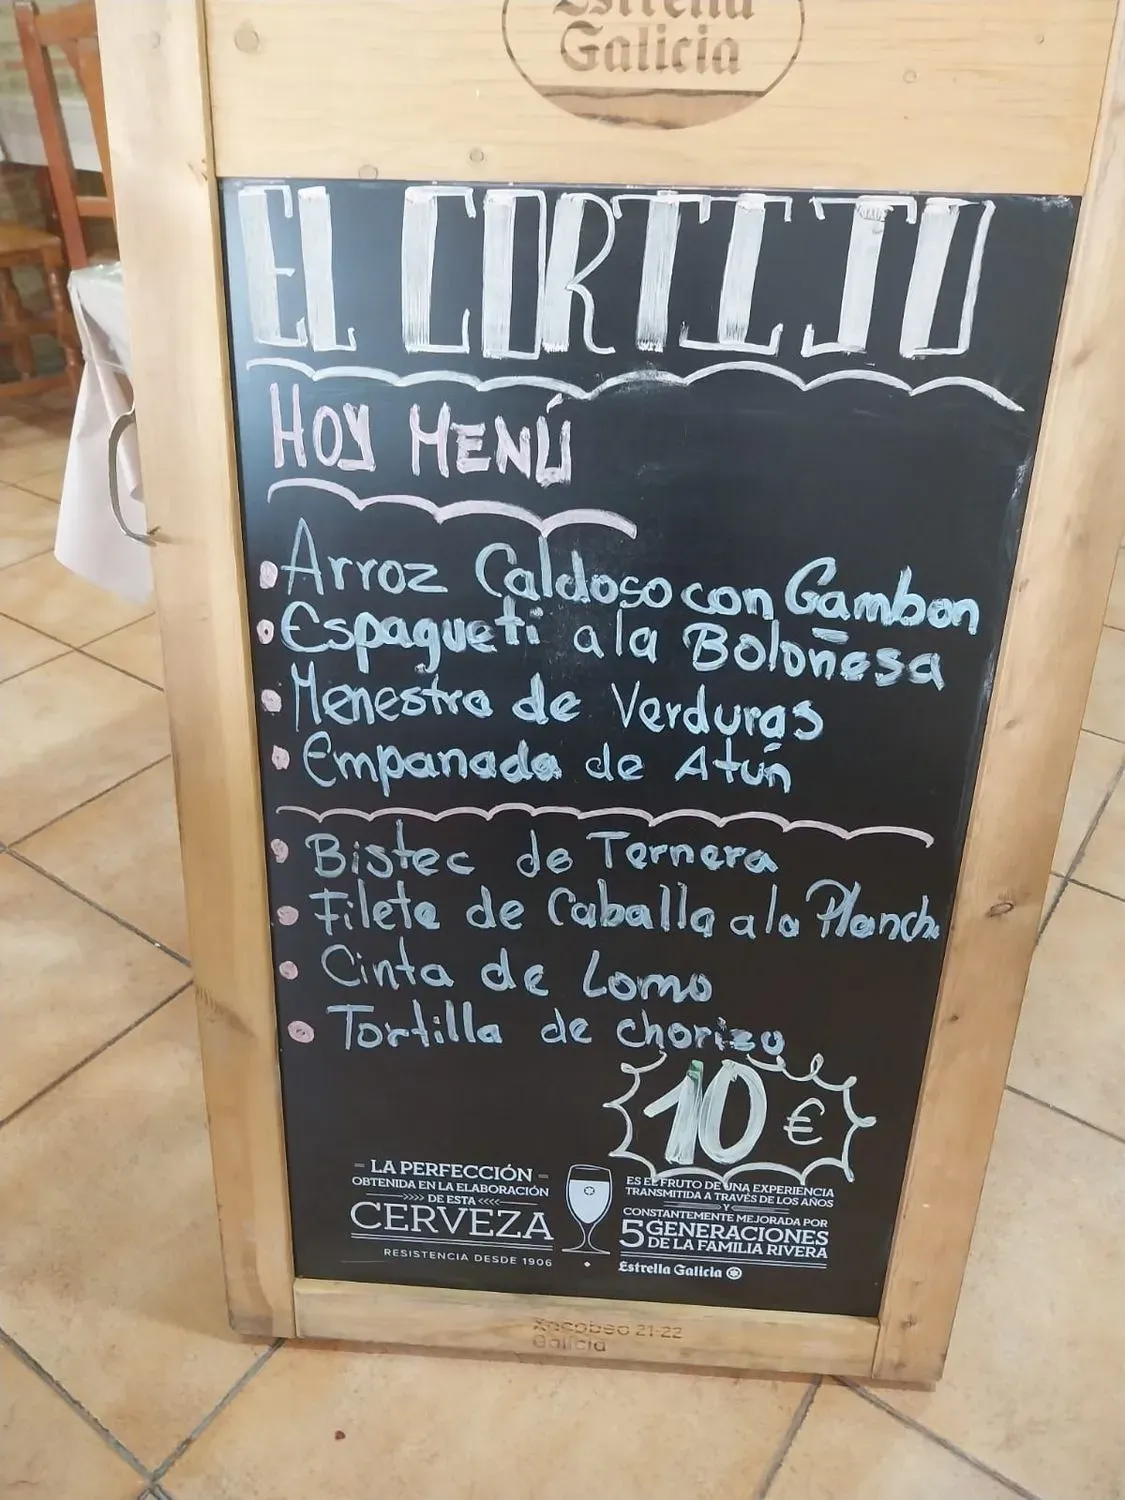 Estrella
Galicia
EL CORTIJO
HOY MENÚ
Arroz Caldoso con Gambon
Espagueti a la Boloñesa
Menestra de Verduras
Empanada de Atún
Bistec de Ternera
Filete de Caballa a la Planch
Cinta de Lomo
Tortilla de chorizo
10 €
LA PERFECCIÓN
OBTENIDA EN LA ELABORACIÓN
DE ESTA
CERVEZA
RESISTENCIA DESDE 1906
ES EL FRUTO DE UNA EXPERIENCIA
TRANSMITIDA A TRAVÉS DE LOS AÑOS
Y
CONSTANTEMENTE MEJORADA POR
5 GENERACIONES
DE LA FAMILIA RIVERA
Estrella Galicia
Xacobeo 21·22
Galicia